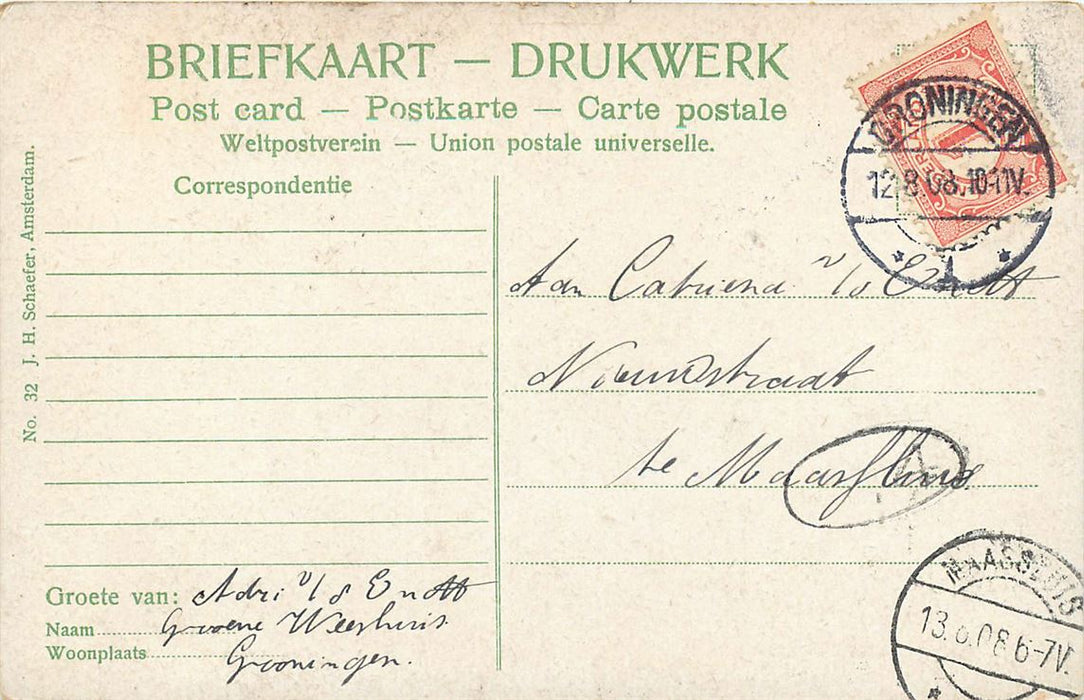 BRIEFKAART — DRUKWERK
Post card — Postkarte — Carte postale
Weltpostverein — Union postale universelle.
Correspondentie
No. 32 J. H. Schaefer, Amsterdam.
GRONINGEN
12.8.08.10-11V.
1
Aan Catriena v/d Endt
Nieuwstraat
te Maassluis
Groete van: Adri v/d Endt
Naam Groene Weeshuis
Woonplaats Groningen.
MAASSLUIS
13.8.08 6-7V.